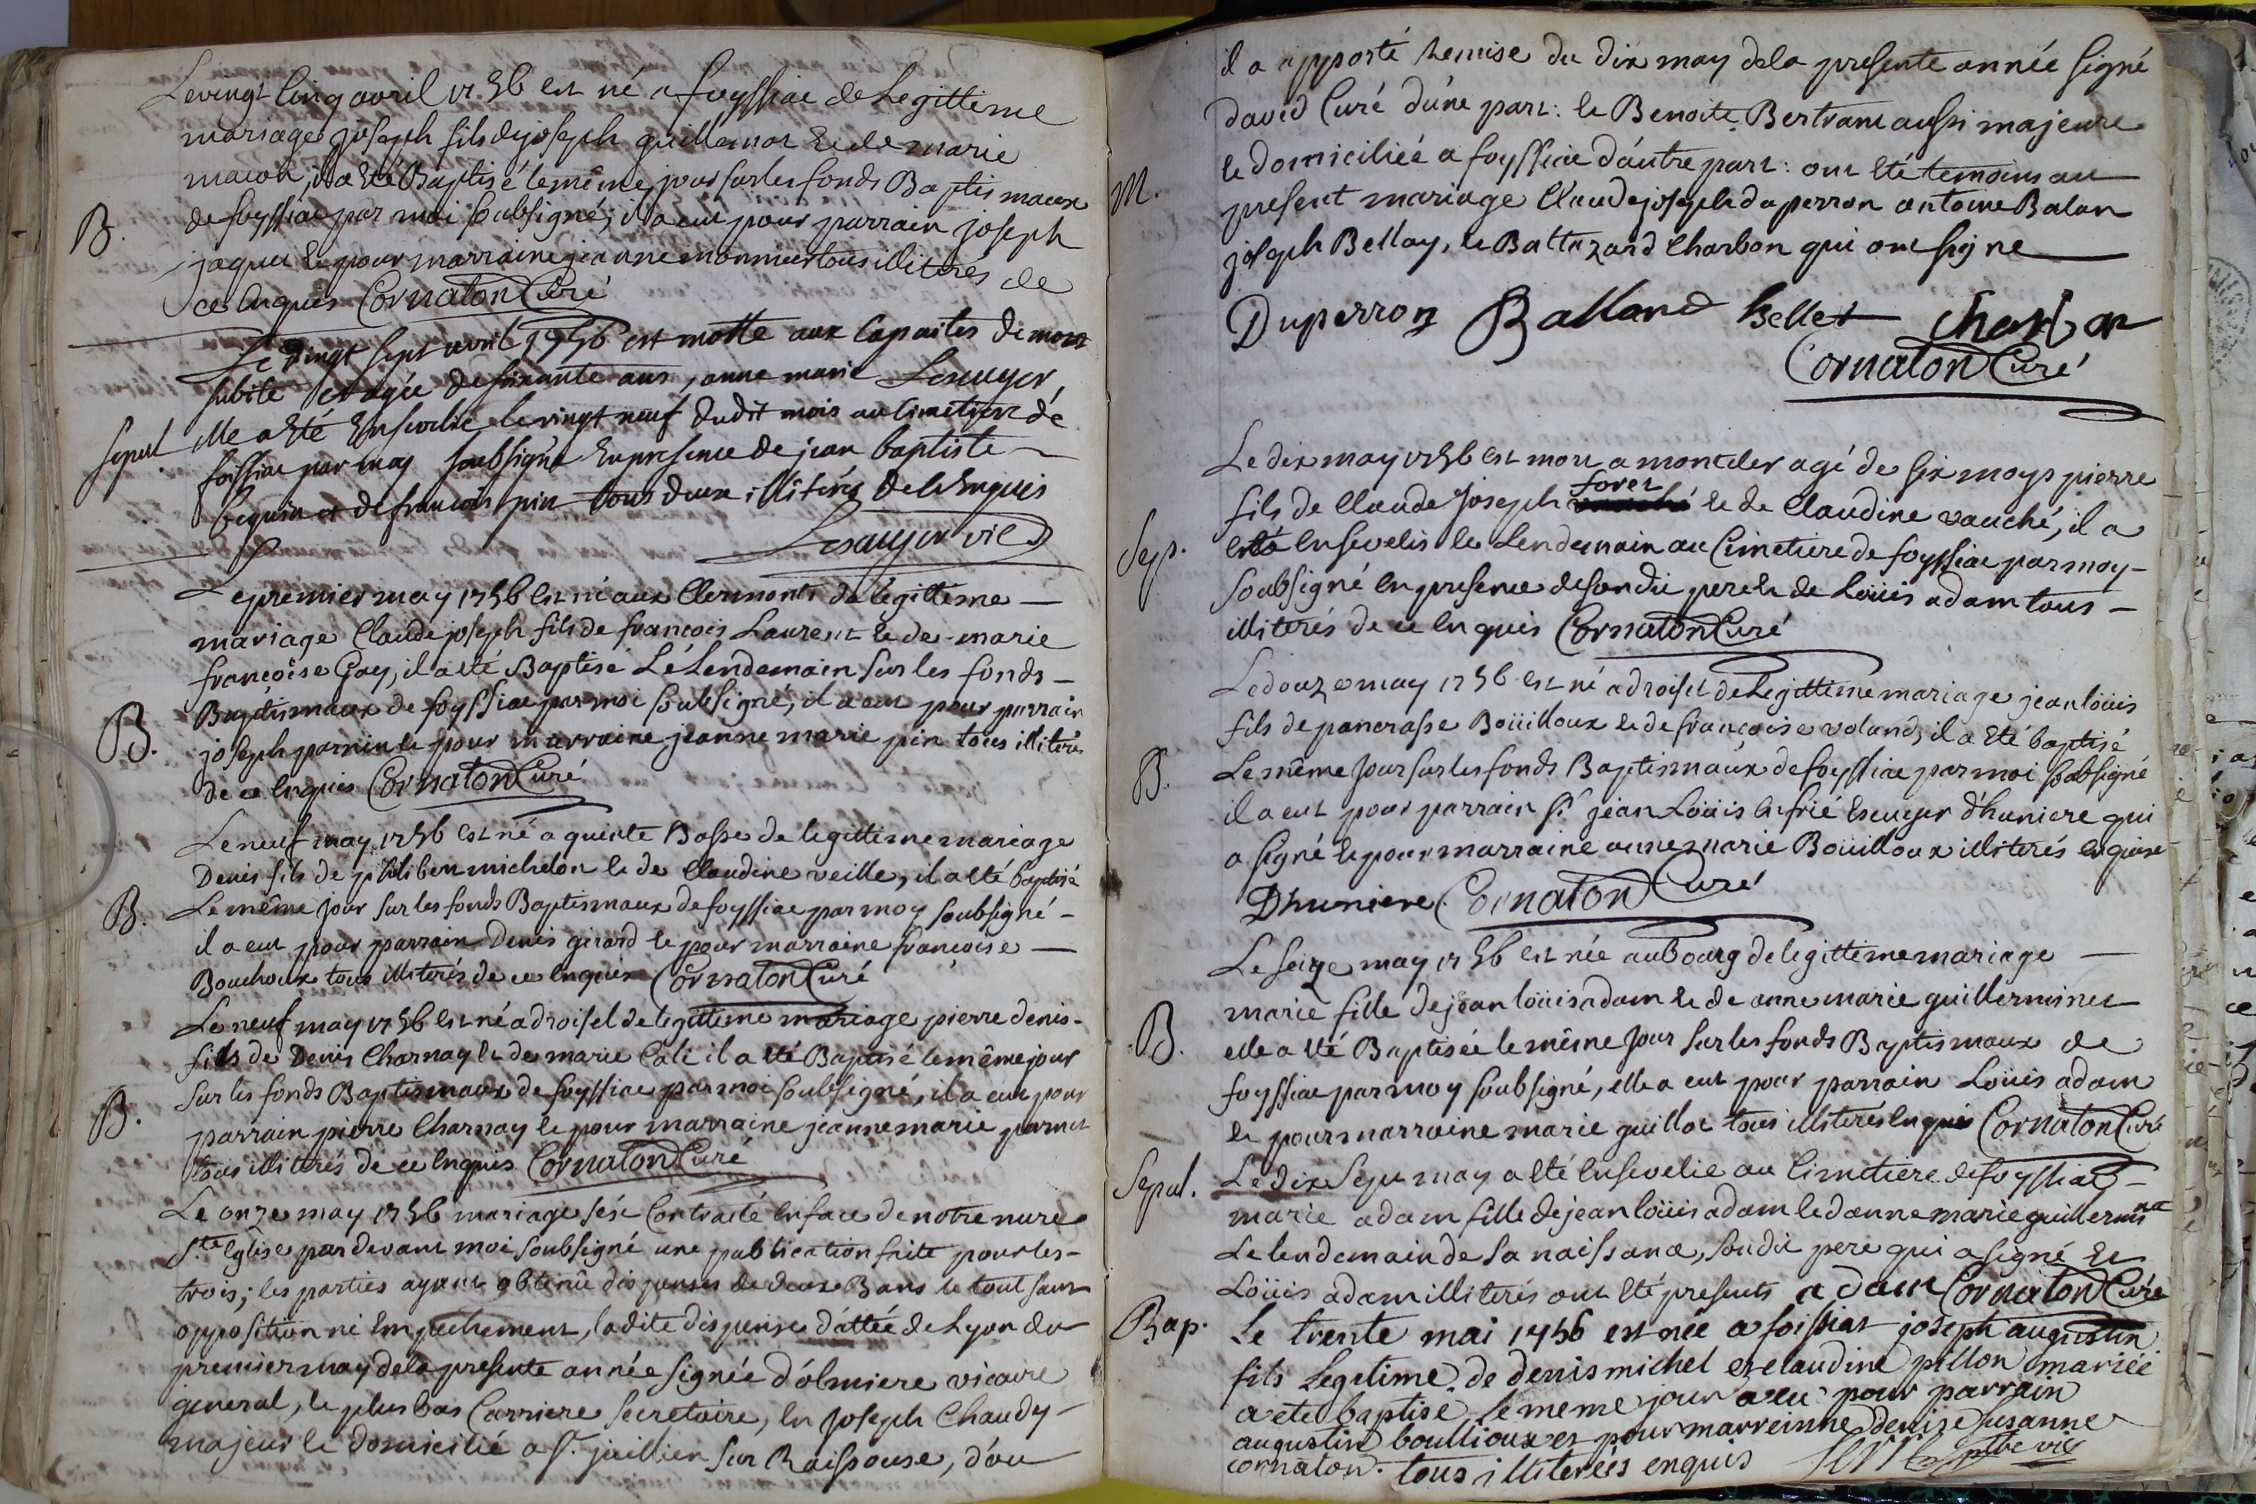 Le vingt Cinq avril 1756 est né a foyssiac de Legittime
mariage joseph fils de joseph guillemot & de marie
macon, il a eté Baptisé le même jour sur les fonds Baptismaux
B. de foyssiac par moi soubsigné; il a eut pour parrain joseph
jaquet & pour marraine jeanne monnier tous illiterés de
ce Enquis Cornaton Curé
Le Vingt sept avril 1756 est motte aux Capaites de mort
subite et agée de soixante ans, anne marie Lesuyer,
Sepul. elle a eté Ensevelie le vingt neuf dudit mois au Cimetiere de
foissiac par moy soubsigné En presence de jean baptiste
bequin et de francois pin tous deux illitérés de ce Enquis
Lesuyer vic
Le premier may 1756 Est né aux Clermonts de légittime
mariage Claude joseph fils de francois Laurent & de marie
françoise Gay, il a eté Baptisé Le Lendemain sur les fonds
B. Baptismaux de foyssiac par moi soubsigné, il a eut pour parrain
joseph parnin & pour marraine jeanne marie pin tous illiterés
de ce Enquis Cornaton Curé
Le neuf may 1756 est né a quinte Basse de legittime mariage
Denis fils de philibert michelon & de Claudine veille, il a eté baptisé
B. Le même jour sur les fonds Baptismaux de foyssiac par moy soubsigné
il a eut pour parrain Denis girard & pour marraine françoise
Bouchoux tous illiterés de ce Enquis Cornaton Curé
Le neuf may 1756 est né a droisel de legittime mariage pierre denis
fils de Denis Charnay & de marie Cali il a eté Baptisé le même jour
B. sur les fonds Baptismaux de foyssiac par moi soubsigné, il a eut pour
parrain pierre Charnay & pour marraine jeanne marie parnet
tous illiterés de ce Enquis Cornaton Curé
Le onze may 1756 mariage s'est Contracté En face de notre mere
Ste Eglise par devant moi soubsigné une publication faite pour les
trois; les parties ayant obtenüe dispenses de deux Bans le tout sans
opposition ni Empêchement, ladite dispense dattée de Lyon du
premier may de la presente année signée d'olmiere vicaire
general, & plus bas Carriere secretaire, En joseph Chaudy
majeur & domicilié a st. juillien sur Raissouse, d'ou
il a apporté Remise du dix may dela presente année signé
david Curé d'une part: & Benoite Bertrant aussi majeure
& domiciliée a foyssiac d'autre part: ont eté temoins au
M. present mariage Claude joseph duperron antoine Balan
joseph Bellay, & Baltazard Charbon qui ont signe
Duperron Balland bellet Charbon
Cornaton Curé
Le dix may 1756 est mort a montcler agé de six moys pierre
fils de Claude Joseph foret & de Claudine vauché, il a
Sep. eté Ensevelis le Lendemain au Cimetiere de foyssiac par moy
soubsigné En presence de son dit pere & de Loüis adam tous
illiterés de ce Enquis Cornaton Curé
Le douze may 1756 est né a droisel de Legittime mariage jean loüis
fils de pancrasse Boüilloux & de françoise voland, il a eté baptisé
B. Le même jour sur les fonds Baptismaux de foyssiac par moi soubsigné
il a eut pour parrain sr jean Loüis Enfrié Escuyer d'huniere qui
a signé & pour marraine anne marie Boüilloux illiterés Enquise
Dhuniere Cornaton Curé
Le seize may 1756 est née au bourg de legittime mariage
marie fille de jean loüis adam & de anne marie guillerminet
B. elle a eté Baptisée le même jour sur les fonds Baptismaux de
foyssiac par moy soubsigné, elle a eut pour parrain Loüis adam
& pour marraine marie guillot tous illiterés Enquis Cornaton Curé
Sepul. Le dix Sept may a eté Ensevelie au Cimetiere de foyssiac
marie adam fille de jean loüis adam & d'anne marie guillerminet
Le lendemain de sa naissance, son dit pere qui a signé &
Loüis adam illiterés ont eté presents adam Cornaton Curé
Bap. Le trente mai 1756 est née a foissiat joseph augustin
fils Legitime de denis michel et claudine pillon mariéé
a ete baptise le meme jour a eu pour parrain
augustin boullioux et pour marreinne denise susanne
cornaton. tous illiterés enquis